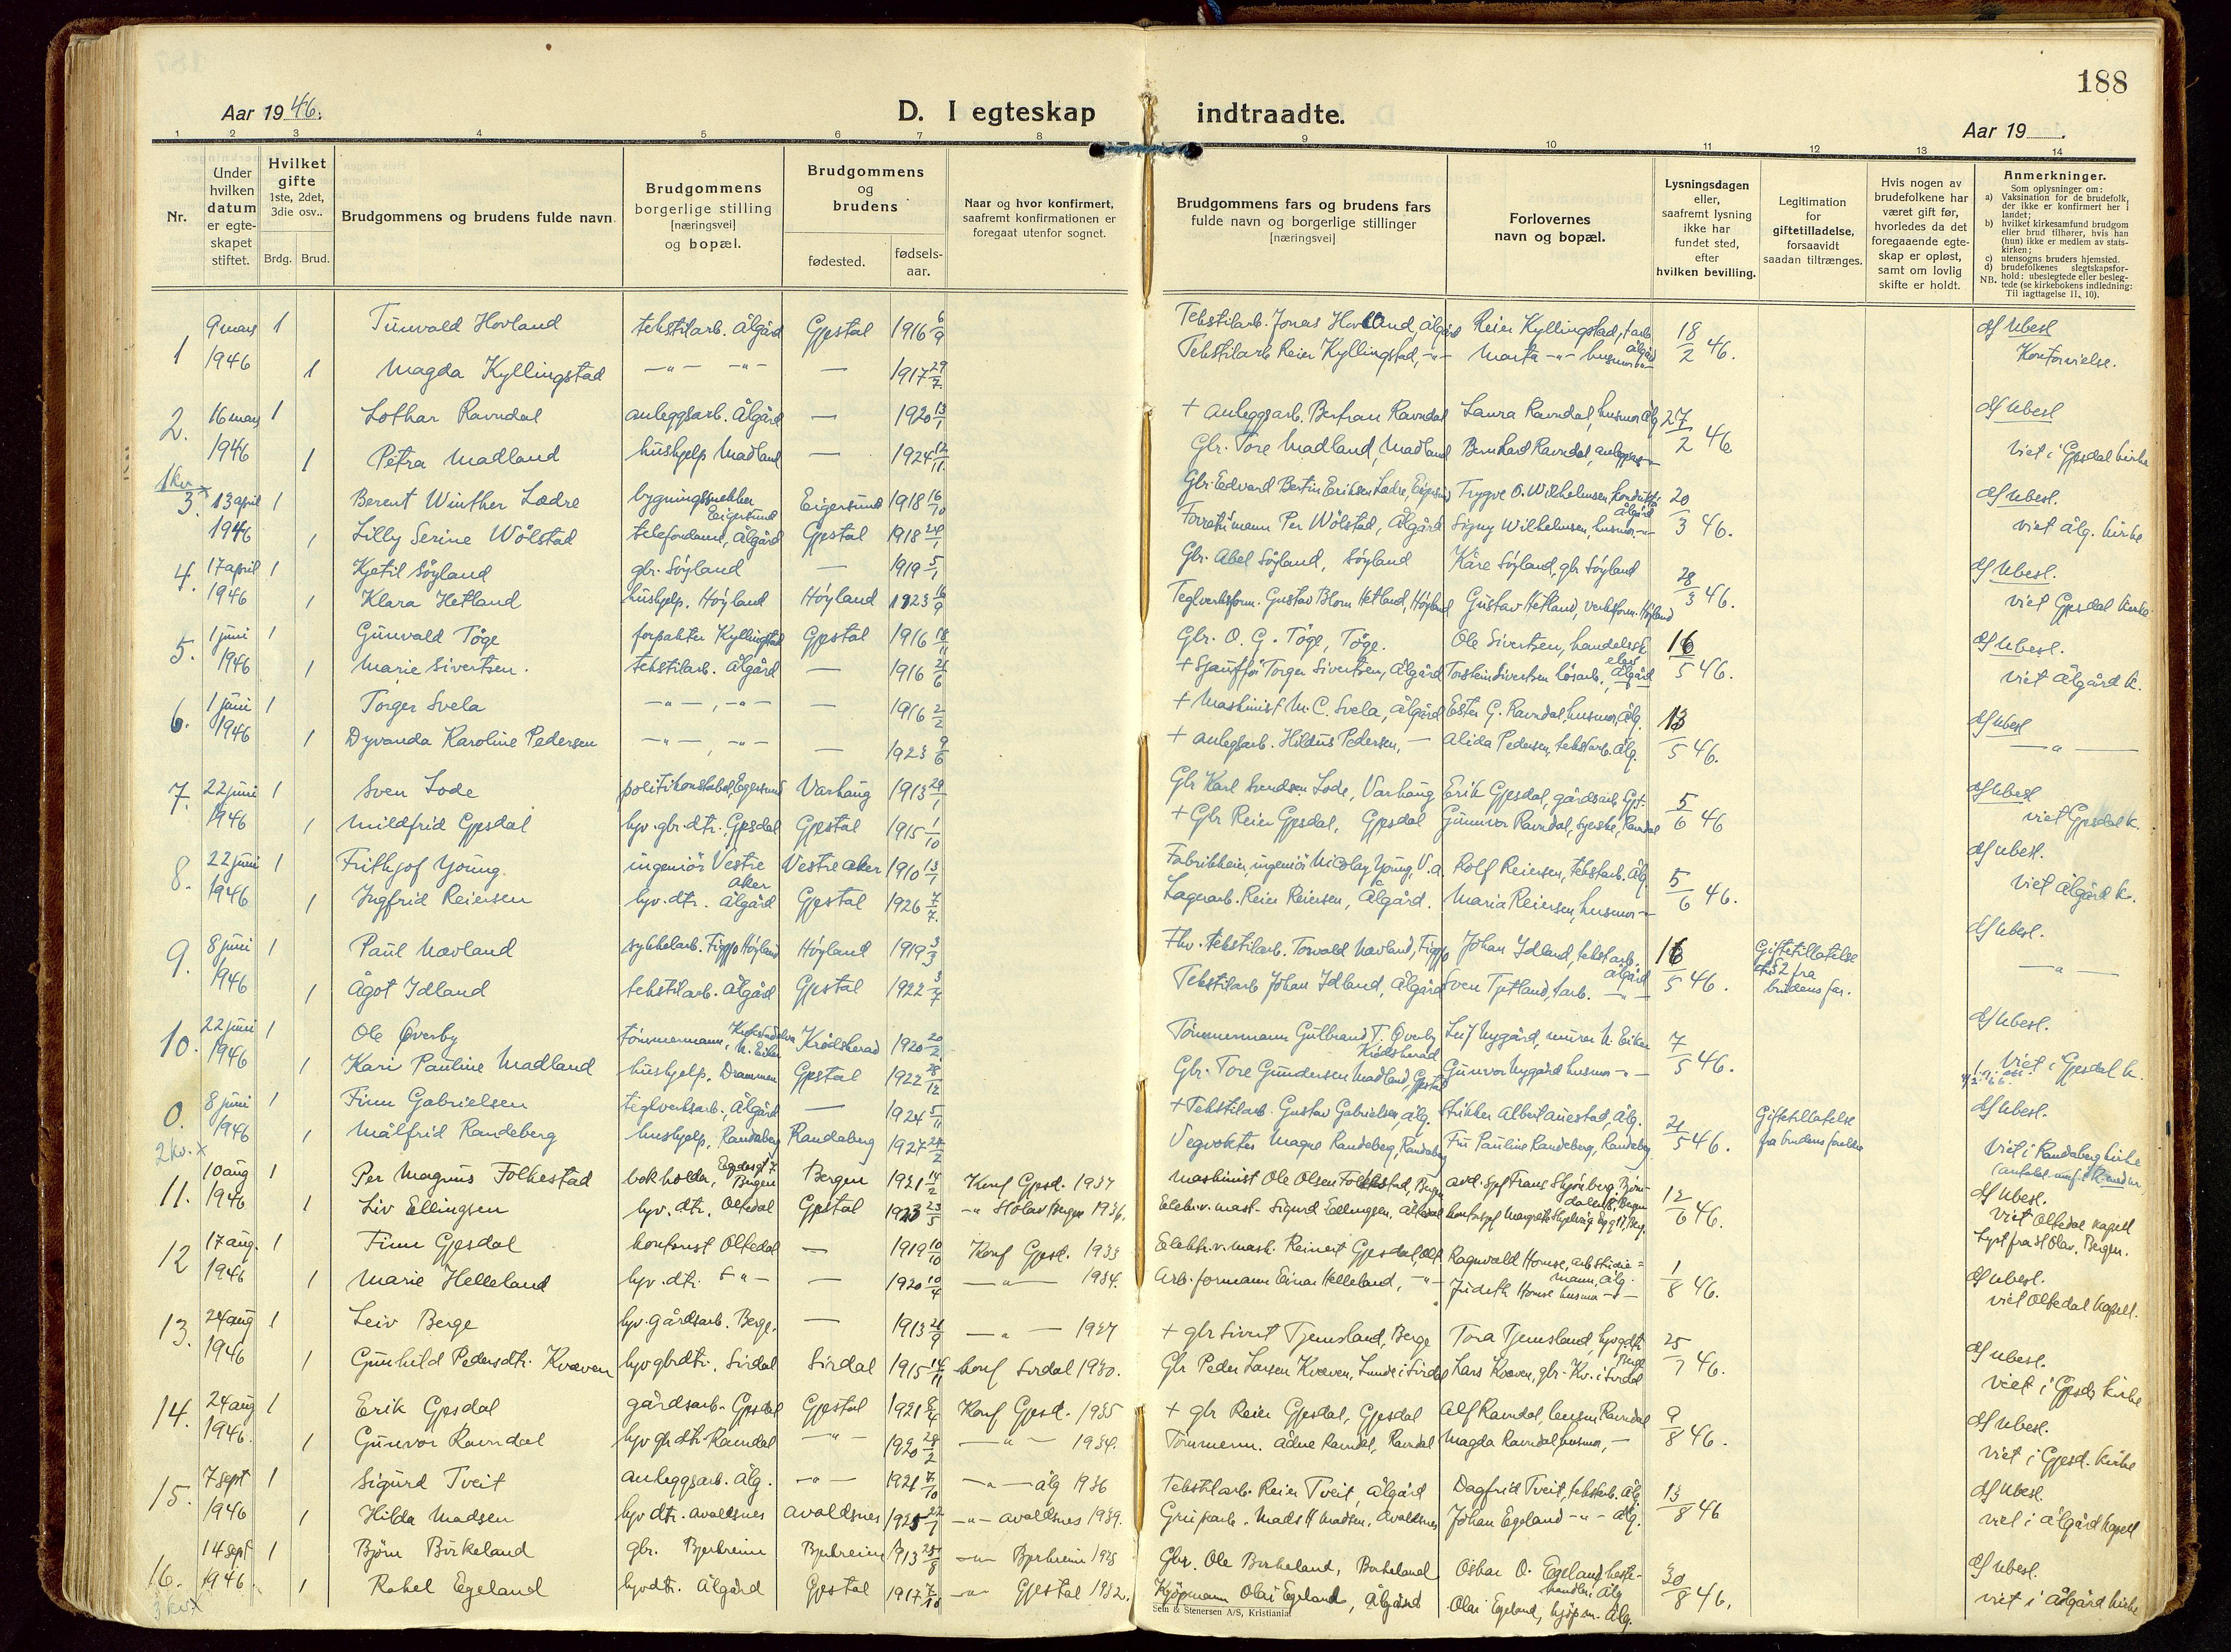 188
Aar 1946.
D. I egteskap indtraadte.
Aar 19 .
1 2 3 4 5 6 7 8 9 10 11 12 13 14
Nr.
Under hvilken datum er egte-skapet stiftet.
Hvilket gifte 1ste, 2det, 3die osv..
Brdg. Brud.
Brudgommens og brudens fulde navn.
Brudgommens borgerlige stilling [næringsvei] og bopæl.
Brudgommens og brudens
fødested.
fødsels-aar.
Naar og hvor konfirmert, saafremt konfirmationen er foregaat utenfor sognet.
Brudgommens fars og brudens fars fulde navn og borgerlige stillinger [næringsvei]
Forlovernes navn og bopæl.
Lysningsdagen eller, saafremt lysning ikke har fundet sted, efter hvilken bevilling.
Legitimation for giftetilladelse, forsaavidt saadan tiltrænges.
Hvis nogen av brudefolkene har været gift før, hvorledes da det foregaaende egte-skap er opløst, samt om lovlig skifte er holdt.
Anmerkninger.
Som oplysninger om:
a) Vaksination for de brudefolk, der ikke er konfirmert her i landet;
b) hvilket kirkesamfund brudgom eller brud tilhører, hvis han (hun) ikke er medlem av stats-kirken;
c) utensogns bruders hjemsted.
d) brudefolkenes slegtskapsfor-hold: ubeslegtede eller besleg-tede (se kirkebokens indledning:
NB. Til iagttagelse II, 10).
1 9 mars 1 Tunvald Hovland tekstilarb. Ålgård Gjestal 1916 6/9 Tekstilarb. Jonas Hovland, Ålgård Reier Kyllingstad, t.arb. Ålgård 18/2 46. d) Ubesl
1946 1 Magda Kyllingstad 1917 29/7 Tekstilarb Reier Kyllingstad, -"- Marta -"- husmor
2. 16 mars 1 Lothar Ravndal anleggsarb. Ålgård — 1920 13/1 + anleggsarb. Bertran Ravndal Laura Ravndal, husmor Ålg. 27/2 46 d) Ubesl
1946 1 Petra Madland hushjelp Madland — 1924 12/11 Gbr. Tore Madland, Madland Bernhard Ravndal, viet i Gjesdal kirke
1 kv. x
3. 13 april 1 Berent Winther Lædre bygningssnekker Eigersund Eigersund 1918 16/10 Gbr. Edvard Bertin Eriksen Lædre, Trygve O. Wilhelmsen, Ålgård 20/3 46. d) Ubesl.
1946 1 Lilly Serine Wölstad telefondame, Ålgård Gjestal 1918 Per Wölstad, Ålgård Signy Wilhelmsen, husmor -"- viet Ålg. kirke
4. 17 april 1 Kjetil Söyland gbr. Söyland — 1919 5/1 Gbr. Abel Söyland, Söyland Kåre Söyland, gbr Söyland 28/3 46. d) Ubesl.
1946 1 Klara Hetland hushjelp. Höyland Höyland 1923 Teglverksform. Gustav Blom Hetland, Höyland Gustav Hetland, verksform. Höyland viet Gjesdal kirke
5. 1 juni 1 Gunvald Töge forpakter Kyllingstad Gjestal 1916 18/11 Gbr. O. G. Töge, Töge. Ole Sivertsen, 16/5 46. d) Ubesl.
1946 1 Marie Sivertsen. tekstilarb. Ålgård — 1916 + Sjauffør Torger Sivertsen, Ålgård Torstein Sivertsen Ålgård viet Ålgård k.
6. 1 juni 1 Torger Svela -"- , -"- — 1916 2/2 + Maskinist M. C. Svela, Ålgård Ester G. Ravndal, husmor, Ålg. 13/5 46. d) Ubesl
1946 1 Dyvanda Karoline Pedersen -"- , -"- — 1923 9/6 + anlegsarb. Hildus Pedersen, — Alida Pedersen, tekst.arb. Ålg. — " —
7. 22 juni 1 Sven Lode politikonstabel, Egersund Varhaug 1913 Gbr Karl Svendsen Lode, Varhaug Erik Gjesdal, gårdsarb. Gjest. 5/6 46 d) Ubesl
1946 1 Mildfrid Gjesdal hjv. gbr.dtr. Gjesdal Gjestal 1915 1/10 + Gbr Reier Gjesdal, Gjesdal Gunnvor Ravndal, syerske, Ravndal viet Gjesdal k.
8. 22 juni 1 Frithjof Young ingeniör Vestre Aker Vestre Aker 1910 13/1 ingeniör Nicolay Young, V. a. Rolf Reiersen, tekstarb. Ålg. 5/6 46. d) Ubesl.
1946 1 Ingfrid Reiersen hjv. dtr. Ålgård Gjestal 1926 7/7 Lagerarb. Reier Reiersen, Ålgård. Maria Reiersen, husmor -"- viet Ålgård k.
9. 8 juni 1 Paul Navland sykkelarb. Figgjo Höyland Höyland 1919 3/3 Fhv. tekstilarb. Torvald Navland, Figgjo Johan Idland, tekstarb. Ålgård 16/5 46. Giftetillatelse fra brudens far. d) Ubesl.
1946 1 Ågot Idland tekstilarb. Ålgård Gjestal 1922 3/7 Tekstilarb Johan Idland, Ålgård Sven Tjetland, t.arb. — " —
10. 22 juni 1 Ole Överby tömmermann, N. Eiker Krödsherad 1920 20/2 Tömmermann Gulbrand T. Överby Krödsherad Leif Nygård, murer N. Eiker 7/5 46. d) Ubesl.
1946 1 Kari Pauline Madland hushjelp, Drammen Gjestal 1922 28/12 Gbr. Tore Gundersen Madland, Gjestal Gunvor Nygård husmor -"- viet i Gjesdal k.
0. 8 juni 1 Finn Gabrielsen teglverksarb., Ålgård — 1924 5/11 + Tekstilarb. Gustav Gabrielsen, Ålg. Strikker Albert Auestad, Ålg. 21/5 46. Giftetillatelse fra brudens foreldre d) Ubesl.
1946 1 Målfrid Randeberg hushjelp, Randaberg Randaberg 1927 Vegvokter Magne Randeberg, Randaberg Fru Pauline Randeberg, Randaberg viet i Randaberg kirke
2 kv. x
11. 10 aug 1 Per Magnus Folkestad bokholder, Bergen Bergen 1921 14/2 Konf Gjesd. 1937 Maskinist Ole Olsen Folkestad, Bergen Frans Skjönberg 12/6 46. d) Ubesl.
1946 1 Liv Ellingsen hjv. dtr. Oltedal Gjestal 1923 23/5 -"- St Olav Bergen 1936. Elektr.v. mask. Sigurd Ellingsen, Oltedal viet Oltedal kapell Lyst fra St Olav, Bergen.
12 17 aug. 1 Finn Gjesdal kontorist Oltedal — 1919 10/10 Konf Gjesd. 1933 Elektr.v. mask. Reinert Gjesdal, Olt. Ragnvald Homse, Ålg. 1/8 46. d) Ubesl.
1946 1 Marie Helleland hjv. dtr. -"- — 1920 10/4 — " — 1934. Arb. formann Einar Helleland, -"- Judith Homse husmor -"- viet Oltedal kapell.
13. 24 aug 1 Leiv Berge hjv. gårdsarb. Berge. — 1913 — " — 1927 + gbr Sivert Tjemsland, Berge Tora Tjemsland, hjv gdtr. Berge 25/7 46. d) Ubesl.
1946 1 Gunhild Pedersdtr. Kvæven hjv gbrdtr. Sirdal Sirdal 1915 14/11 konf Sirdal 1930. Gbr Peder Larsen Kvæven, Lunde i Sirdal Lars Kvæven, gbr. Kv. i Sirdal viet i Gjesdal kirke
14. 24 aug 1 Erik Gjesdal gårdsarb. Gjesdal Gjestal 1921 Konf Gjesd. 1935 + gbr Reier Gjesdal, Gjesdal Alf Ravndal, Ravndal 9/8 46. d) Ubesl.
1946. 1 Gunvor Ravndal hjv gbr dtr. Ravndal -"- 1920 — " — 1934. Tömmerm. Ådne Ravndal, Ravndal Magda Ravndal husmor, — viet i Gjesd. kirke
15. 7 sept 1 Sigurd Tveit anleggsarb. Ålg. -"- 1921 7/10 — " — Ålg 1936 Tekstilarb. Reier Tveit, Ålgård Dagfrid Tveit, tekstarb. Ålg. 13/8 46 d) Ubesl.
1946 1 Hilda Madsen hjv dtr. Avaldsnes Avaldsnes 1925 -"- Avaldsnes 1939. Mads H Madsen, Avaldsnes Johan Egeland -"- Ålg. viet i Ålgård kapell
16. 14 sept 1 Björn Birkeland gbr. Bjerkreim Bjerkreim 1913 -"- Bjerkreim 1928 Gbr. Ole Birkeland, Birkeland Oskar O. Egeland hestehandler, Ålg 30/8 46. d) Ubesl.
1946. 1 Rakel Egeland hjv dtr. Ålgård Gjestal 1917 7/10 -"- Gjestal 1932. Kjöpmann Olai Egeland, Ålgård Olai Egeland, kjöpm. Ålg. viet i Ålgård kirke
3 kv x
Sem & Stenersen A/S, Kristiania